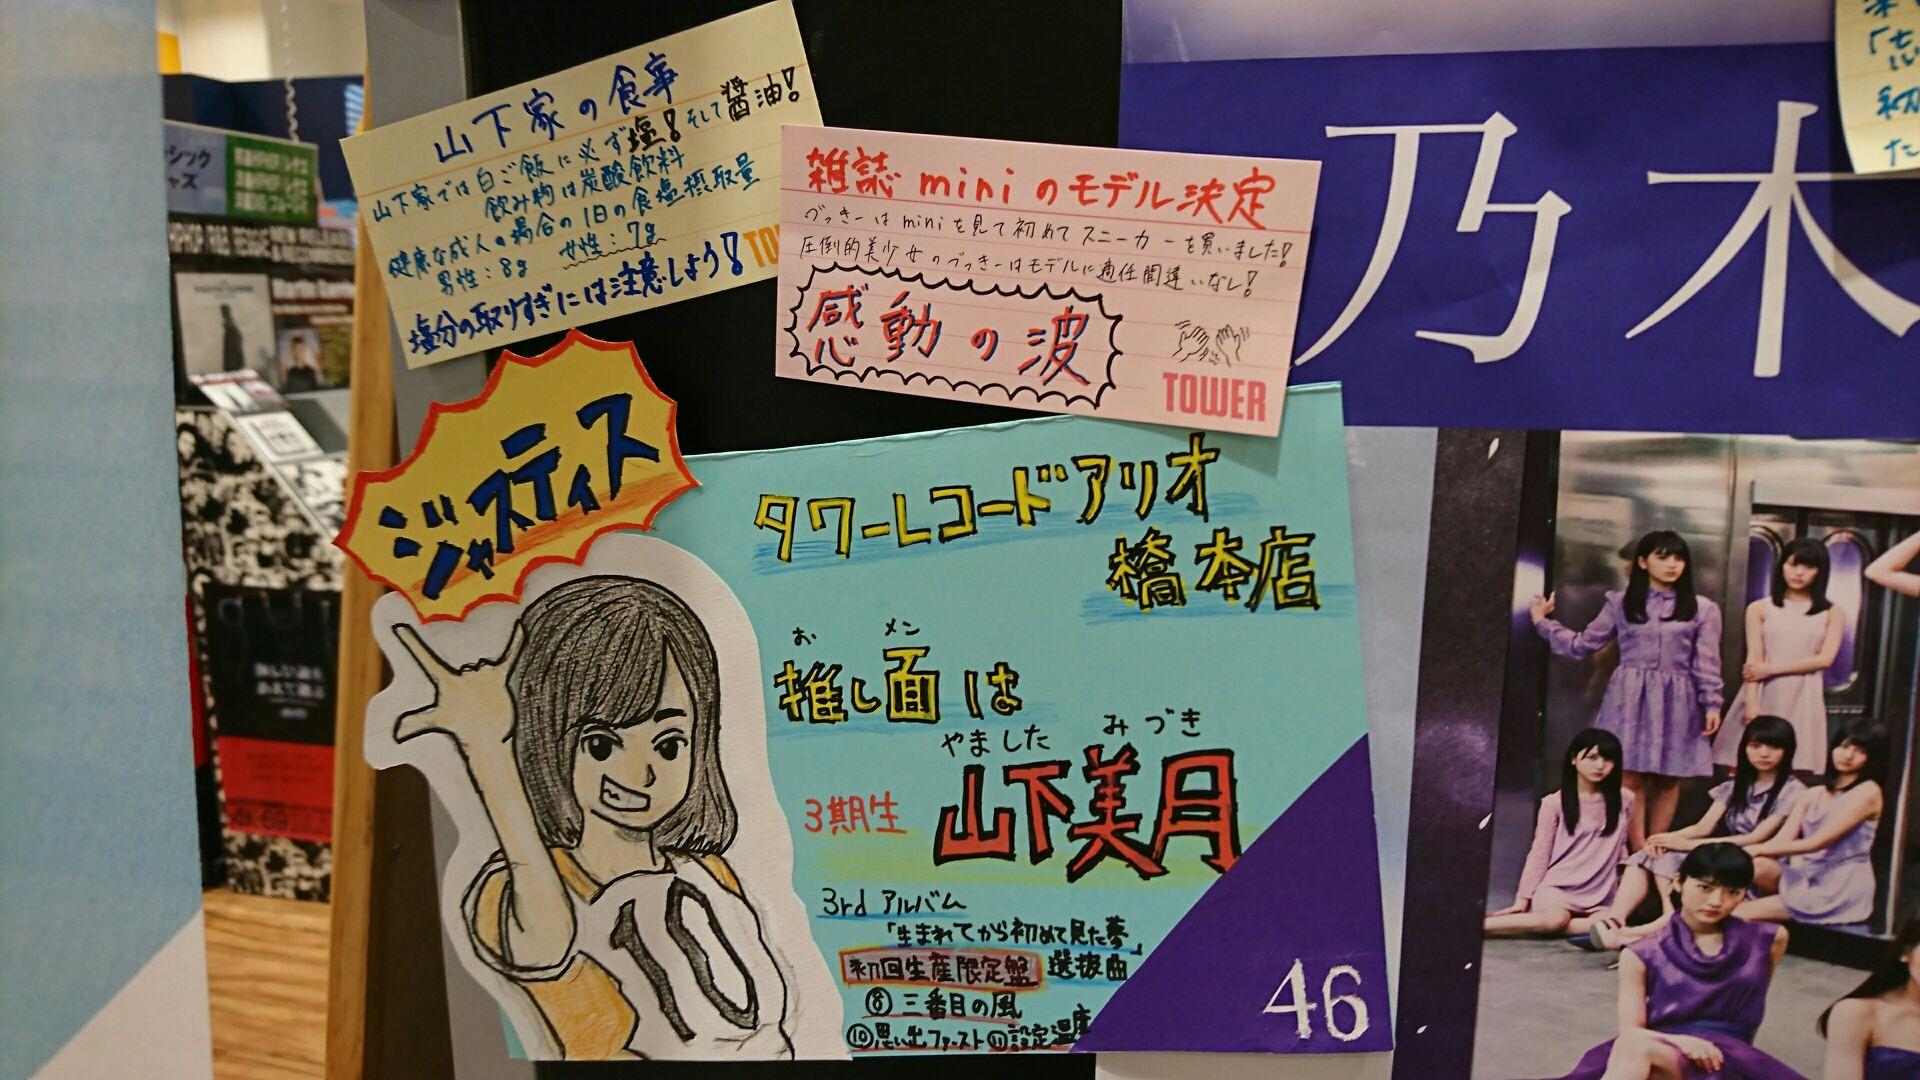 山下家の食事
山下家では白ご飯に必ず塩!そして醤油!
飲み物は炭酸飲料
健康な成人の場合の1日の食塩摂取量
男性:8g 女性:7g
塩分の取りすぎには注意しよう!
雑誌miniのモデル決定
づっきーはminiを見て初めてスニーカーを買いました!
圧倒的美少女のづっきーはモデルに適任間違いなし!
感動の波
TOWER
ジャスティス
タワーレコードアリオ
橋本店
お メン
推し面は
やました みづき
3期生 山下美月
3rd アルバム
「生まれてから初めて見た夢」
初回生産限定盤 選抜曲
⑧三番目の風
⑩思い出ファースト⑪設定温度
10
46
乃木
初
た
シック
ャズ
HIPHOP